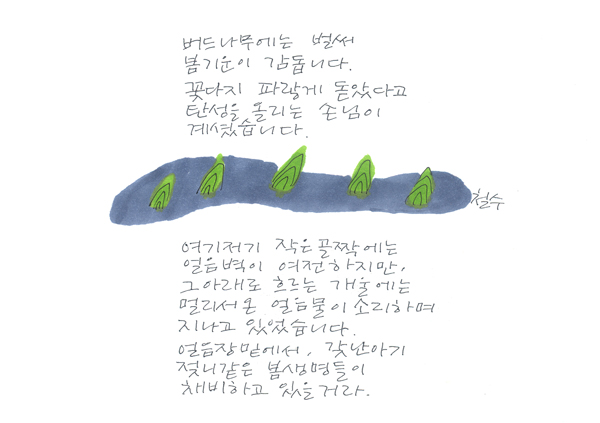 버드나무에는 벌써
봄기운이 감돕니다.
꽃다지 파랗게 돋았다고
탄성을 올리는 손님이
계셨습니다.
철수
여기저기 작은 골짝에는
얼음벽이 여전하지만,
그아래로 흐르는 개울에는
멀리서온 얼음물이 소리하며
지나고 있었습니다.
얼음장밑에서, 갓난아기
젖니같은 봄생명들이
채비하고 있을거라.